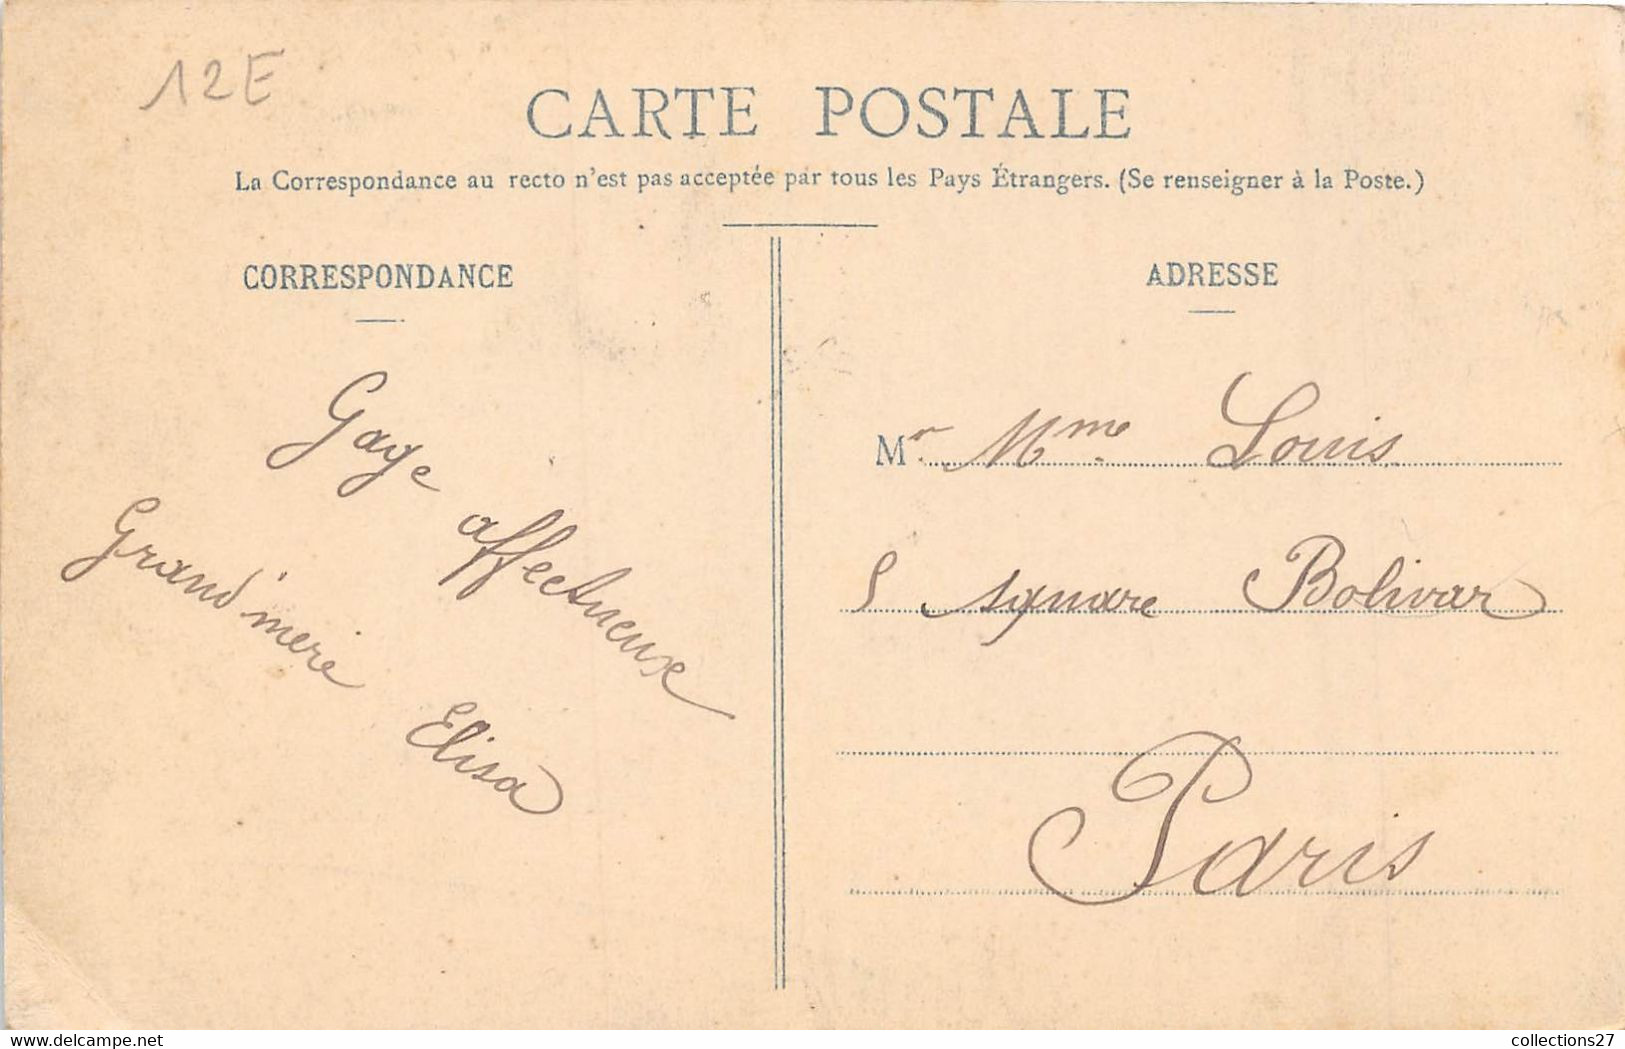 12E
CARTE POSTALE
La Correspondance au recto n'est pas acceptée par tous les Pays Étrangers. (Se renseigner à la Poste.)
CORRESPONDANCE
Gage affectueux
Grand'mère Elisa
ADRESSE
Mr Mme Louis
5 square Bolivar
Paris
www.delcampe.net
collections27